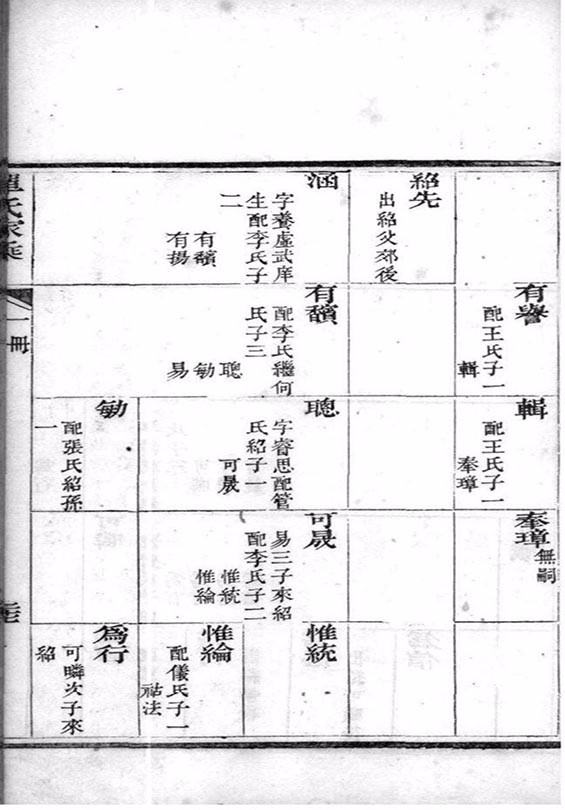 紹先
出紹父郊後
涵
字養虛武庠
生配李氏子
二
有馪
有揚
有譽
配王氏子一
輯
有馪
配李氏繼何
氏子三
聰
敏
易
輯
配王氏子一
奉璋
聰
字睿思配管
氏紹子一
可晟
敏
配張氏紹孫
一
奉璋
無嗣
可晟
易三子來紹
配李氏子二
惟統
惟綸
惟統
惟綸
配儀氏子一
祜法
爲行
可瞵次子來
紹
氏家乘
一冊